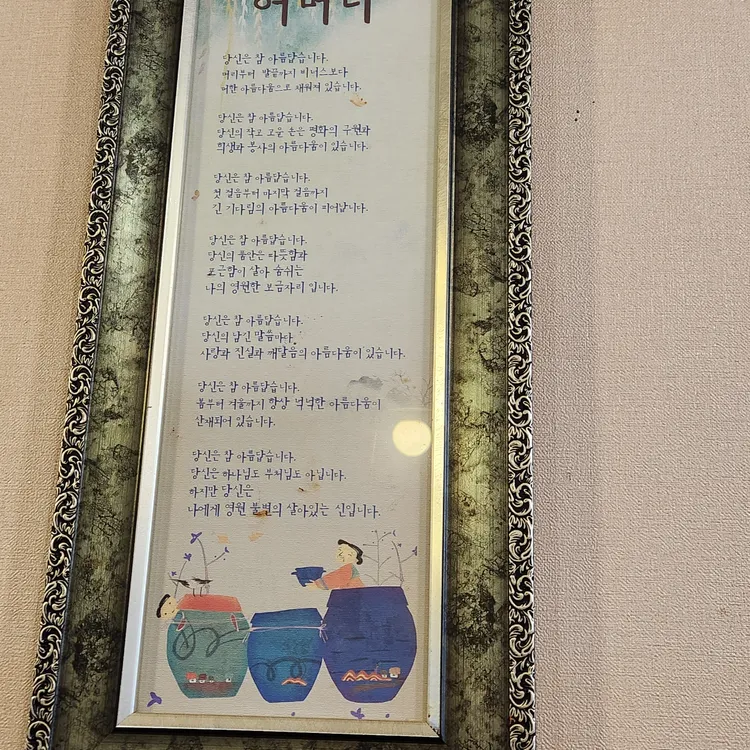 어머니
당신은 참 아름답습니다.
머리부터 발끝까지 비너스보다
더한 아름다움으로 채워져 있습니다.
당신은 참 아름답습니다.
당신의 작고 고운 손은 평화의 구원과
희생과 봉사의 아름다움이 있습니다.
당신은 참 아름답습니다.
첫 걸음부터 마지막 걸음까지
긴 기다림의 아름다움이 피어납니다.
당신은 참 아름답습니다.
당신의 품안은 따뜻함과
포근함이 살아 숨쉬는
나의 영원한 보금자리 입니다.
당신은 참 아름답습니다.
당신의 담긴 말씀마다
사랑과 진실과 깨달음의 아름다움이 있습니다.
당신은 참 아름답습니다.
봄부터 겨울까지 항상 넉넉한 아름다움이
산재되어 있습니다.
당신은 참 아름답습니다.
당신은 하나님도 부처님도 아닙니다.
하지만 당신은
나에게 영원 불변의 살아있는 신입니다.